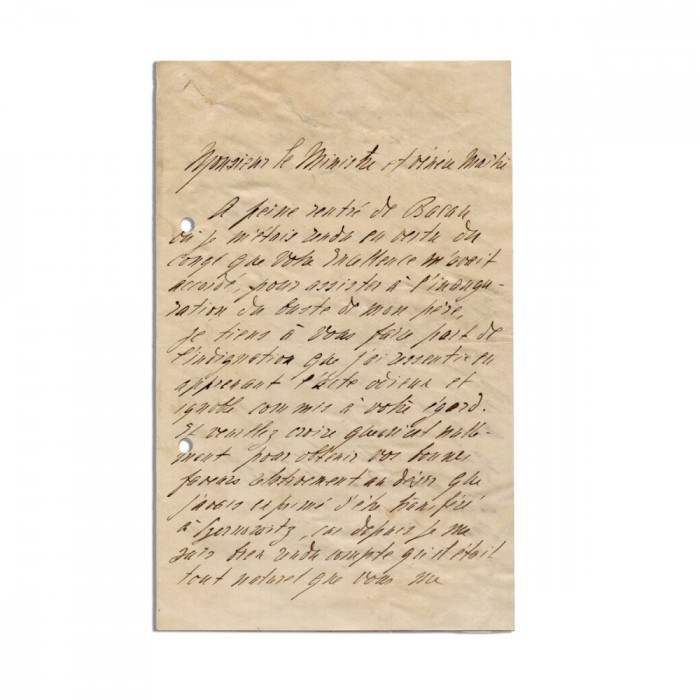 Monsieur le Ministre et vénéré Maître
A peine rentré de Bacau
où je m'étais rendu en vertu du
congé que Votre Excellence m'avait
accordé, pour assister à l'inaugu-
ration du buste de mon père,
je tiens à vous faire part de
l'indignation que j'ai ressentie en
apprenant l'acte odieux et
ignoble commis à votre égard.
Et veuillez croire que ce n'est nulle-
ment pour obtenir vos bonnes
faveurs relativement au désir que
j'avais exprimé d'être transféré
à Czernowitz, car depuis je me
suis bien rendu compte qu'il était
tout naturel que vous me